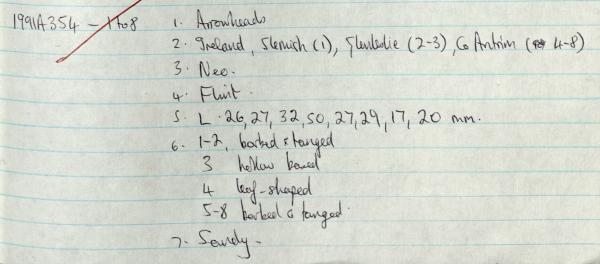 1991A354 - 1 to 8
1. Arrowheads
2. Ireland, Slemish (1), Glenleslie (2-3), Co Antrim (4-8)
3. Neo.
4. Flint.
5. L. 26, 27, 32, 50, 27, 29, 17, 20 mm.
6. 1-2, barbed & tanged
3 hollow based
4 leaf-shaped
5-8 barbed & tanged.
7.